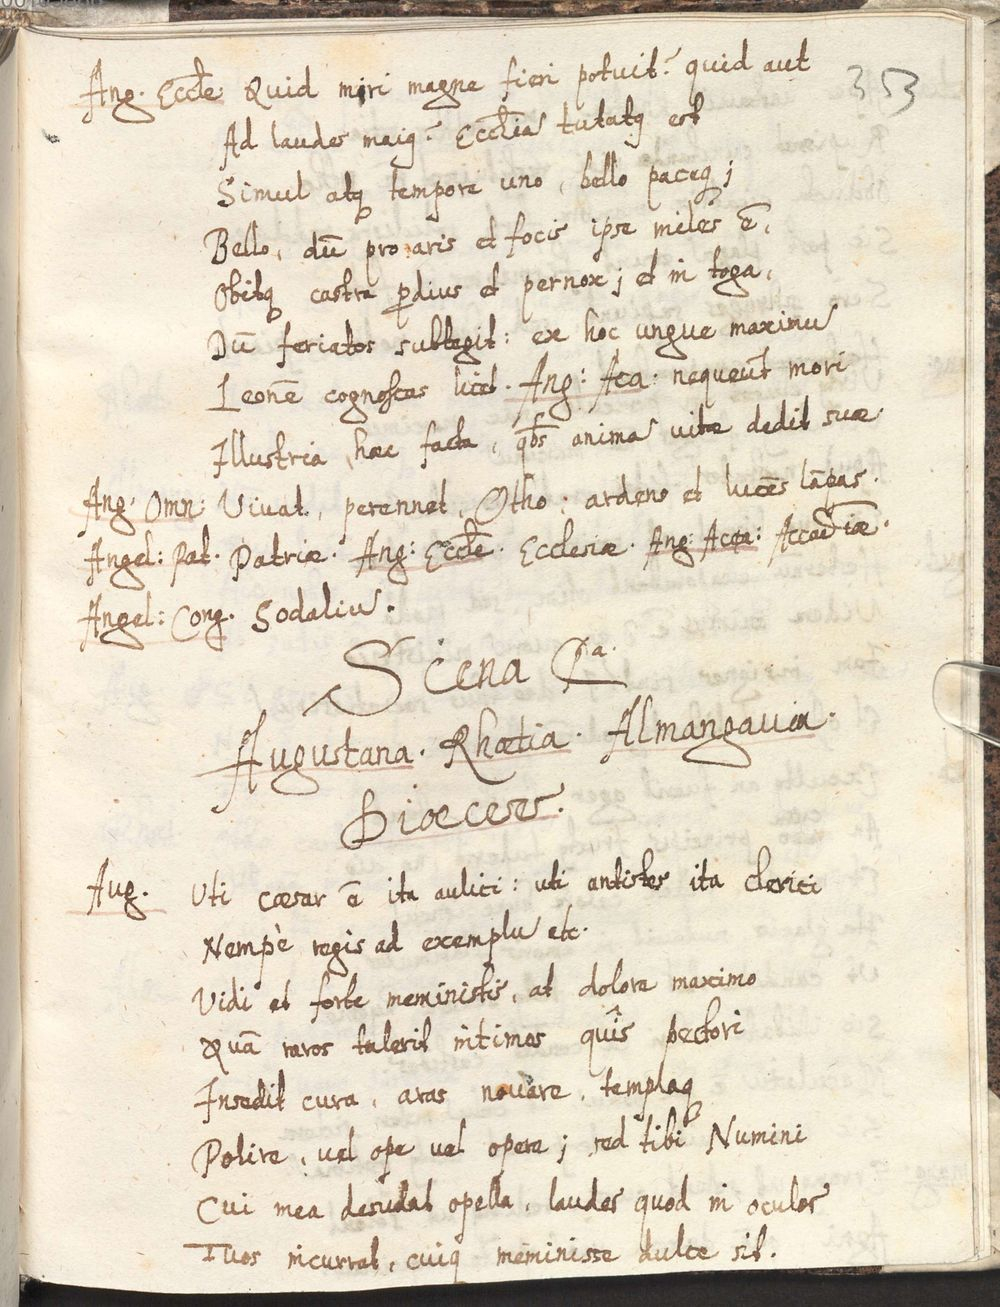 Ang. Eccle. Quid miri magne fieri potuit? quid aut
353
Ad laudes maiq? Ecclia tutatq est
Simul atq tempore uno, bello paceq;
Bello, dū pro aris et focis ipse miles ē,
Obitq castra pdius et pernox; et in toga,
Dū feriatos subtegit: ex hoc ungue maximū
Leonē cognoscas licet. Ang: Aca: nequeūt mori
Illustria, haec facta, qbs anima vitæ dedit suæ.
Ang. Omn: Vivat, perennet, Otho: ardens et lucēs lāpas.
Angel: Pat. Patriæ. Ang: Eccle. Ecclesiæ. Ang: Aca: Accadiæ.
Angel: Cong. Sodaliū.
Scena
Augustana. Rhætia. Almangavia.
Dioeceses.
Aug. Uti cæsar ē ita aulici: uti antistes ita clerici
Nempè regis ad exemplū etc.
Vidi et forte meministis, at dolore maximo
Quā raros taleris intimos quîs pectori
Insedit cura, aras novare, templaq
Polire, vel ope vel opere; sed tibi Numini
Cui mea desudat opella, laudes quod in oculos
Tuos incurrat, cuiq meminisse dulce sit.